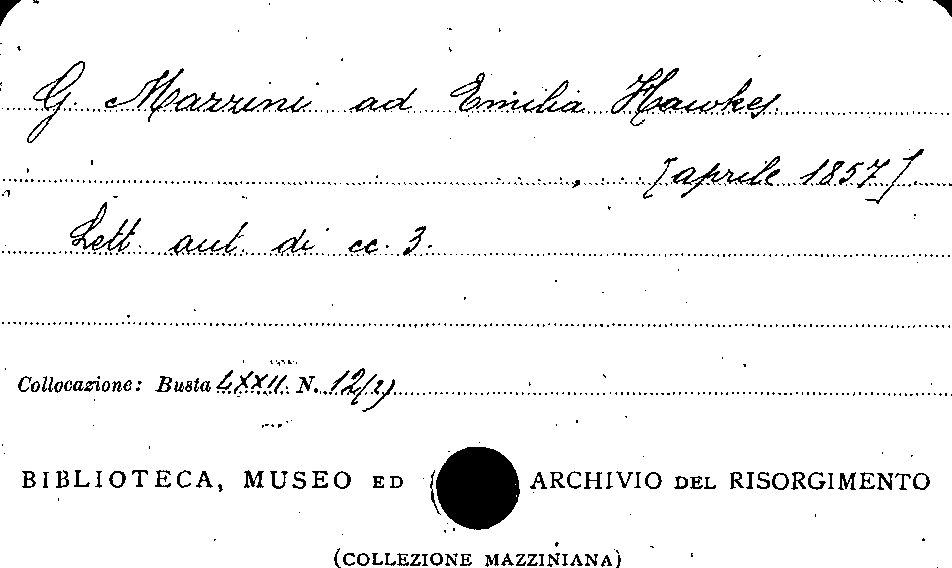 G. Mazzini ad Emilia Hawkes
[aprile 1857]
Lett. aut. di cc. 3.
Collocazione: Busta LXXII N. 12(2)
BIBLIOTECA, MUSEO ED ARCHIVIO DEL RISORGIMENTO
(COLLEZIONE MAZZINIANA)